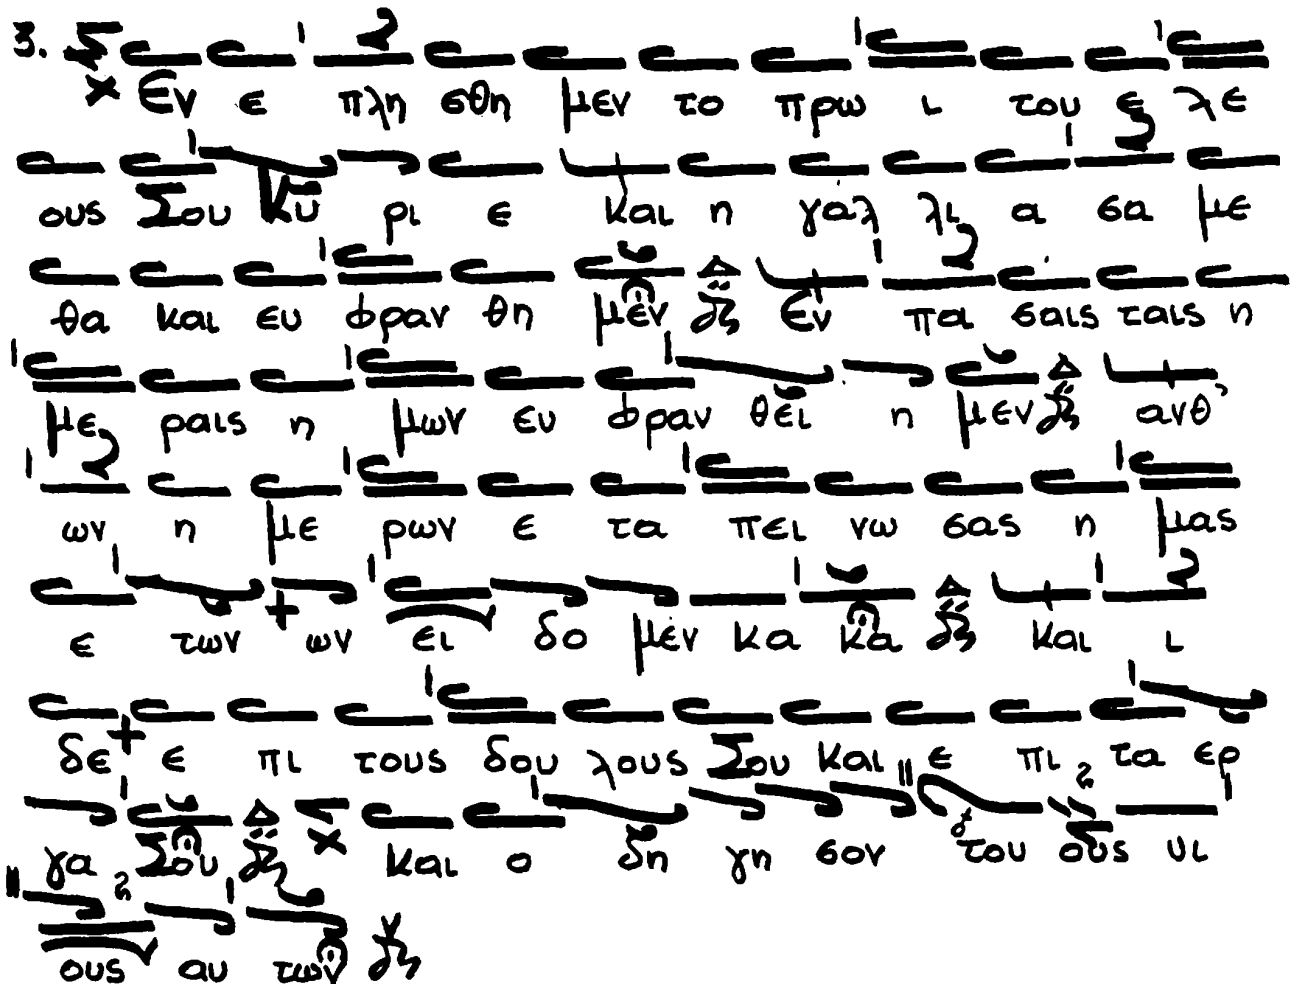 3. Εν ε πλη σθη μεν το πρω ι του ε λε
ους Σου Κυ ρι ε και η γαλ λι α σα με
θα και ευ φραν θη μεν Εν πα σαις ταις η
με ραις η μων ευ φραν θει η μεν ανθ'
ων η με ρων ε τα πει νω σας η μας
ε των ων ει δο μεν κα κα και ι
δε ε πι τους δου λους Σου και ε πι τα ερ
γα Σου και ο δη γη σον τους υι
ους αυ των